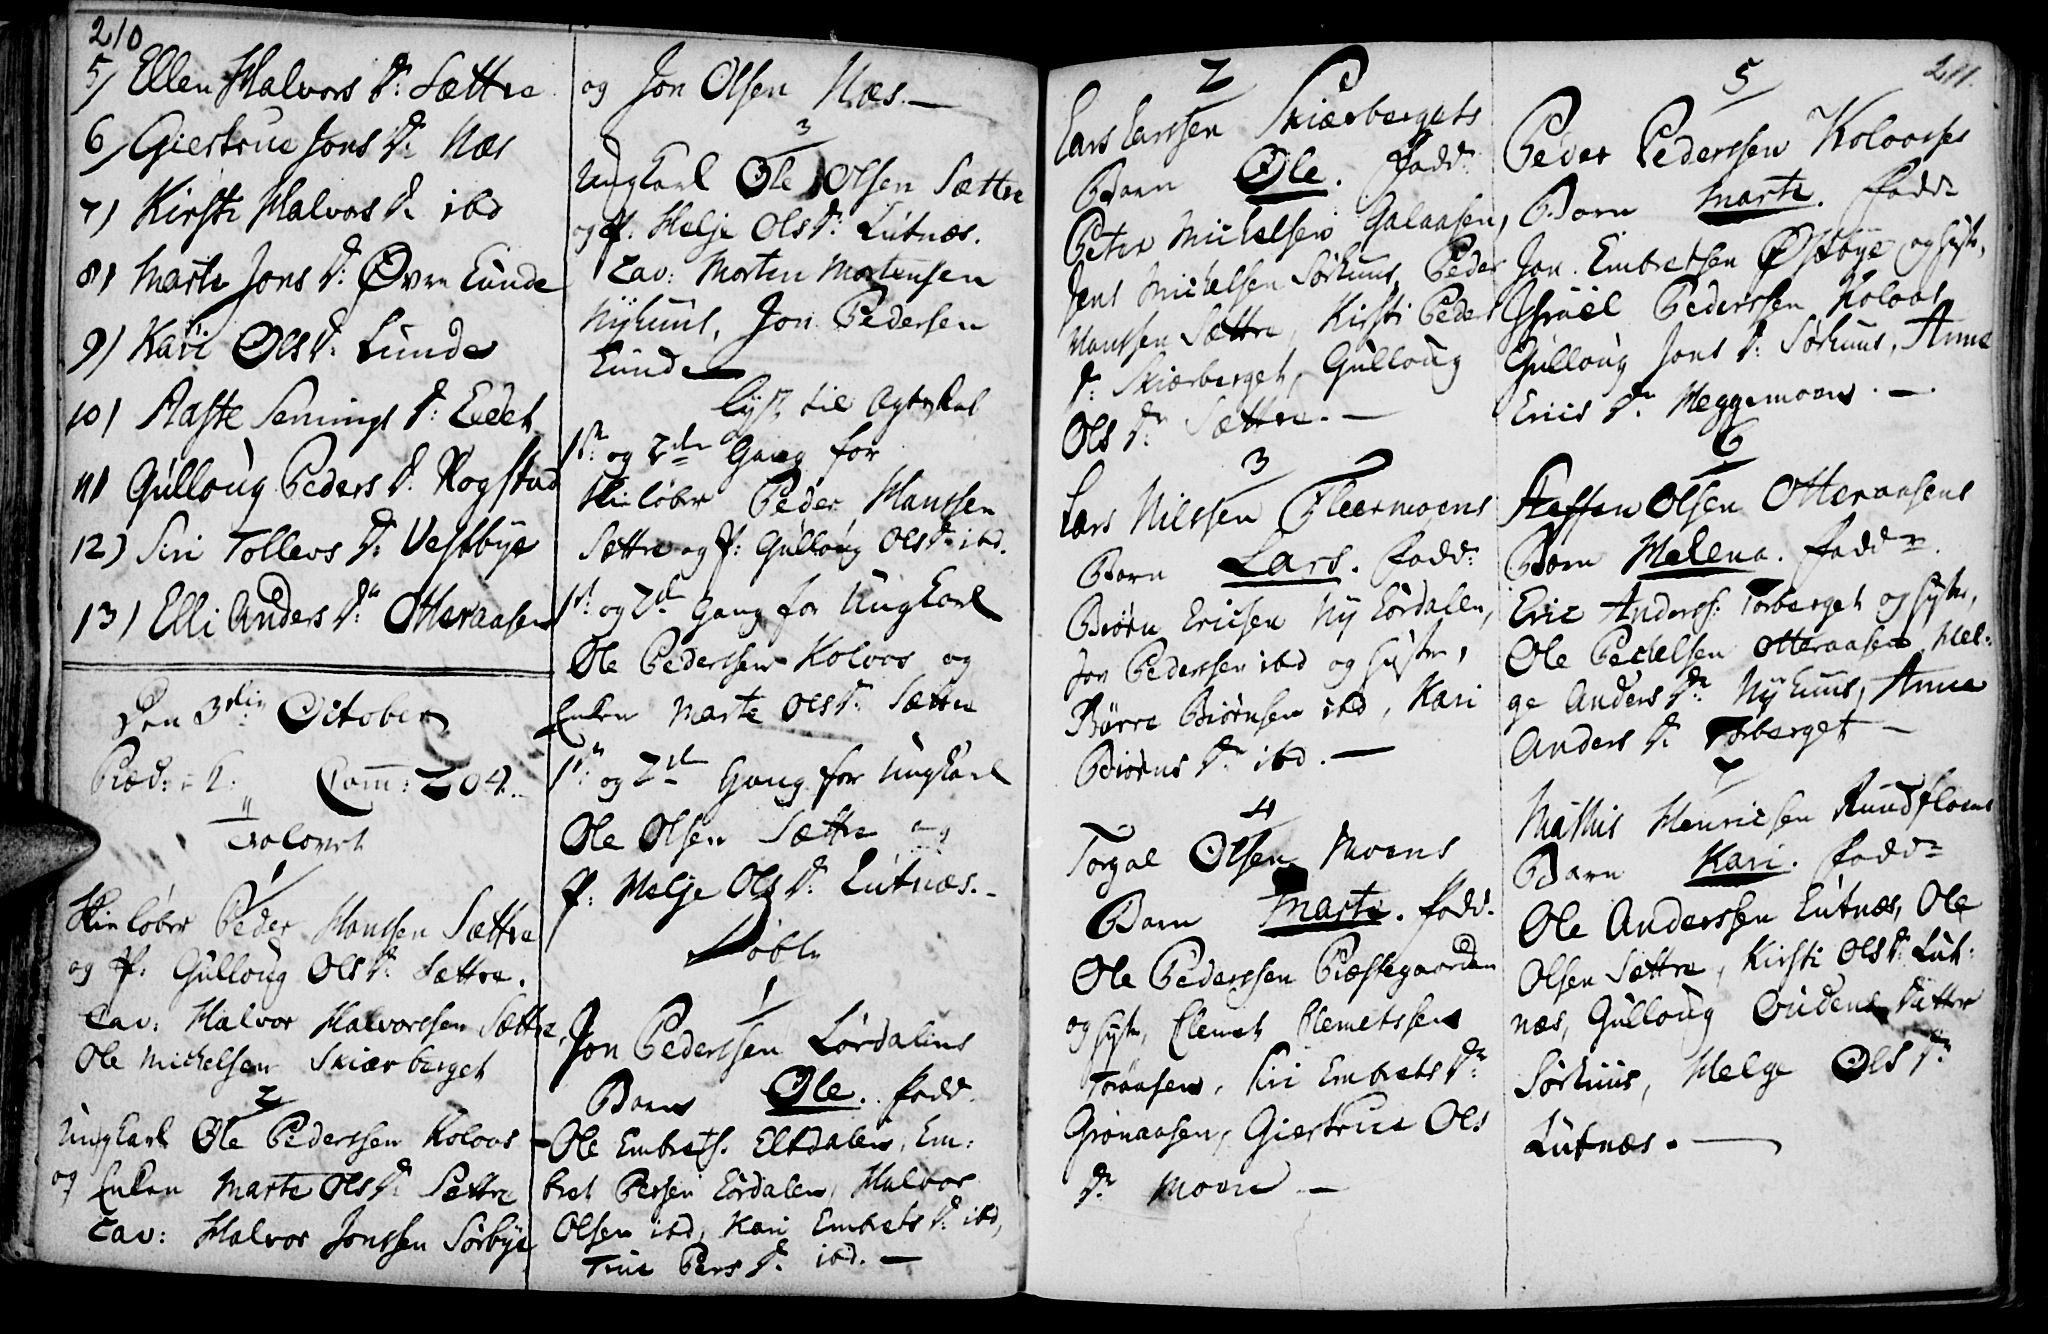 210
5) Ellen Halvors D: Sættre
6) Giertrue Jons D: Næs
7) Kirsti Halvors D: ibd
8) Marte Jons D: Øvre Lunde
9) Kari Ols D: Lunde
10) Aaste Semings D: Eedet
11) Gulloug Peders D: Rogstad
12) Siri Tollevs D: Vestbye
13) Elli Anders Dr Otteraasen
Den 3die October
Præd: Com: 204
Trolovet
1
Skieløber Peder Hanssen Sættre
og P: Gulloug Ols D: Sættre.
Cav: Halvor Halvorssen Sættre,
Ole Michelsen Skiærberget
2
Ungkarl Ole Pederssen Koloos
og Enken Marte Ols D: Sættre
Cav: Halvor Jonssen Sörbye
og Jon Olsen Næs. —
3
Ungkarl Ole Olsen Sættre
og P: Helje Ols D: Lutnæs.
Cav: Morten Mortensen
Nyhuus, Jon Pedersen
Lunde
Lyst til Ægteskab
1st: og 2den Gang for
Skieløber Peder Hanssen
Sættre og P: Gulloug Ols D: ibd.
1st: og 2den Gang for Ungkarl
Ole Pederssen Koloos og
Enken Marte Ols D: Sættre
1st: og 2den Gang for Ungkarl
Ole Olsen Sættre og
P: Helje Ols D: Lutnæs. -
Döbte
1
Jon Pederssen Lørdalens
Barn Ole. fadd:
Ole Embretss. Eltdalen, Em:
bret Persen Lördalen, Halvor
Olsen ibd, Kari Embrets D: ibd,
Trine Pers D: ibd. —
2
Lars Larssen Skiærbergets
Barn Ole. fadd:
Peter Michelsen Galaasen,
Jens Michelsen Sörhuus, Peder
Hanssen Sættre, Kirsti Peders
D: Skiærberget, Gulloug
Ols Dr Sættre. —
3
Lars Nilssen Fleermoens
Barn Lars. fadd:
Biörn Ericsen Ny Lördalen,
Jon Pederssen ibd og hustr,
Börre Biörnsen ibd, Kari
Biörns Dr ibd. —
4
Torgal Olsen Moens
Barn Marte. fadd:
Ole Pederssen Præstegaarden
og hustr, Clemet Clemetssen
Toraasen, Siri Embrets Dr
Grönaasen, Giertrue Ols
Dr Moen —
211.
5
Peder Pederssen Koloosses
Barn Marte. fadd:
Jon Embretsen Østbye og hustr,
Israël Pederssen Koloos
Gulloug Jons D: Sørhuus, Anne
Erics Dr Heggemoen. —
6
Steffen Olsen Otteraasens
Barn Helena. faddr.
Eric Anderss. Torberget og hustr,
Ole Pedelsen Otteraasen, Hel:
ge Anders Dr Nyhuus, Anne
Anders D: Torberget —
7
Mathis Henricsen Rundfloens
Barn Kari. faddr
Ole Anderssen Lutnæs, Ole
Olsen Sættre, Kirsti Ols D: Lut:
næs, Gulloug Oudens Datter
Sörhuus, Helge Ols Dr
Lutnæs. —